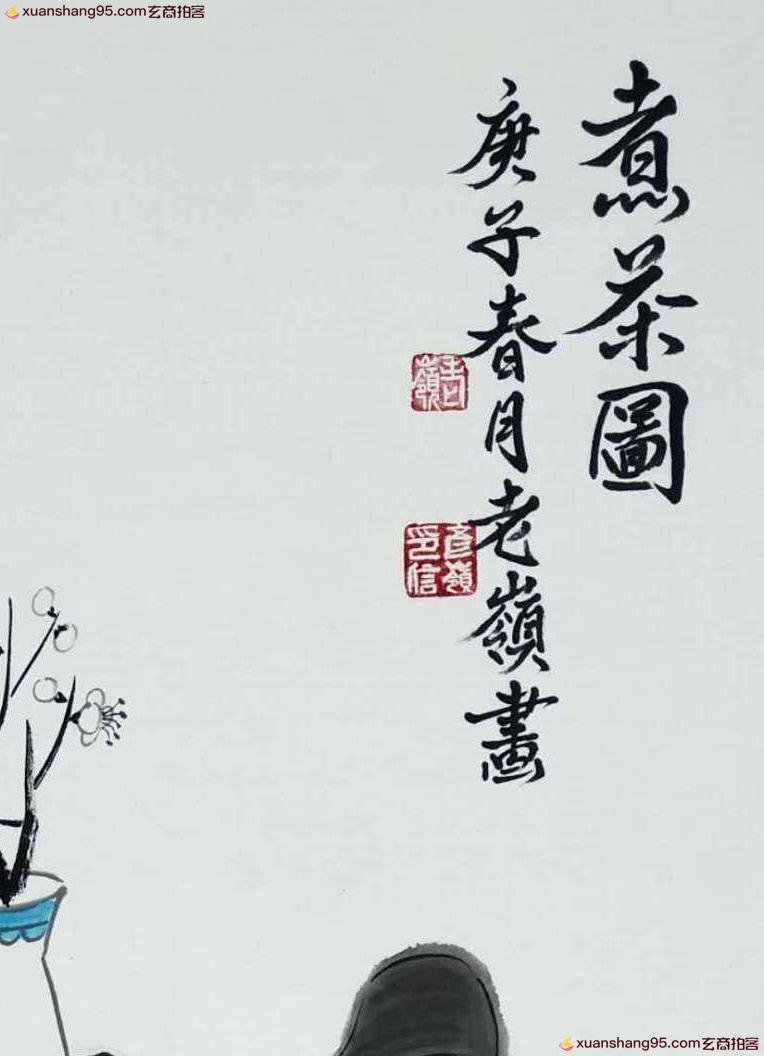 xuanshang95.com玄商拍客
煮茶圖
庚子春月老嶺畫
彥嶺
印信
xuanshang95.com玄商拍客